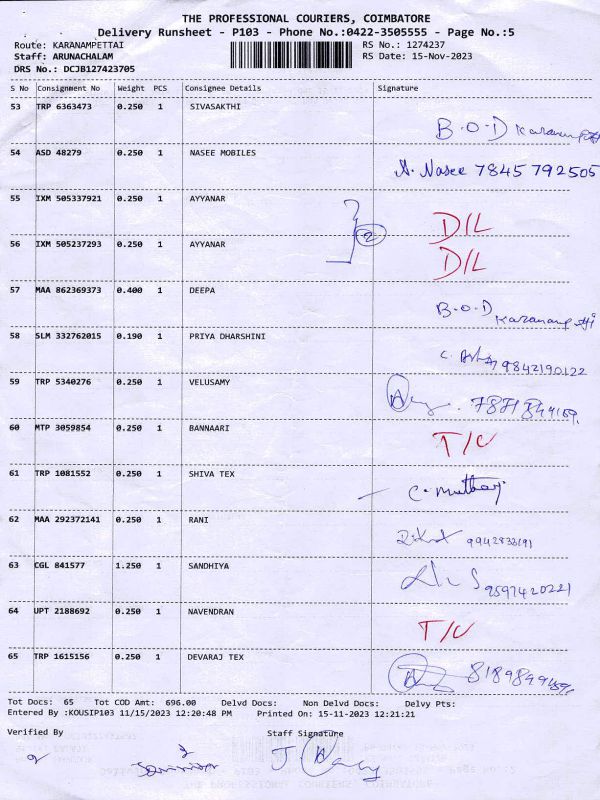 THE PROFESSIONAL COURIERS, COIMBATORE
Delivery Runsheet - P103 - Phone No.:0422-3505555 - Page No.:5
Route: KARANAMPETTAI RS No.: 1274237
Staff: ARUNACHALAM RS Date: 15-Nov-2023
DRS No.: DCJB127423705
S No Consignment No Weight PCS Consignee Details Signature
53 TRP 6363473 0.250 1 SIVASAKTHI
B.O.D
54 ASD 48279 0.250 1 NASEE MOBILES
A. Nasee 7845792505
55 IXM 505337921 0.250 1 AYYANAR
D/L
2
56 IXM 505237293 0.250 1 AYYANAR
D/L
57 MAA 862369373 0.400 1 DEEPA
B.O.D
58 SLM 332762015 0.190 1 PRIYA DHARSHINI
9842190122
59 TRP 5340276 0.250 1 VELUSAMY
60 MTP 3059854 0.250 1 BANNAARI
T/C
61 TRP 1081552 0.250 1 SHIVA TEX
62 MAA 292372141 0.250 1 RANI
63 CGL 841577 1.250 1 SANDHIYA
9597420221
64 UPT 2188692 0.250 1 NAVENDRAN
T/C
65 TRP 1615156 0.250 1 DEVARAJ TEX
Tot Docs: 65 Tot COD Amt: 696.00 Delvd Docs: Non Delvd Docs: Delvy Pts:
Entered By :KOUSIP103 11/15/2023 12:20:48 PM Printed On: 15-11-2023 12:21:21
Verified By Staff Signature